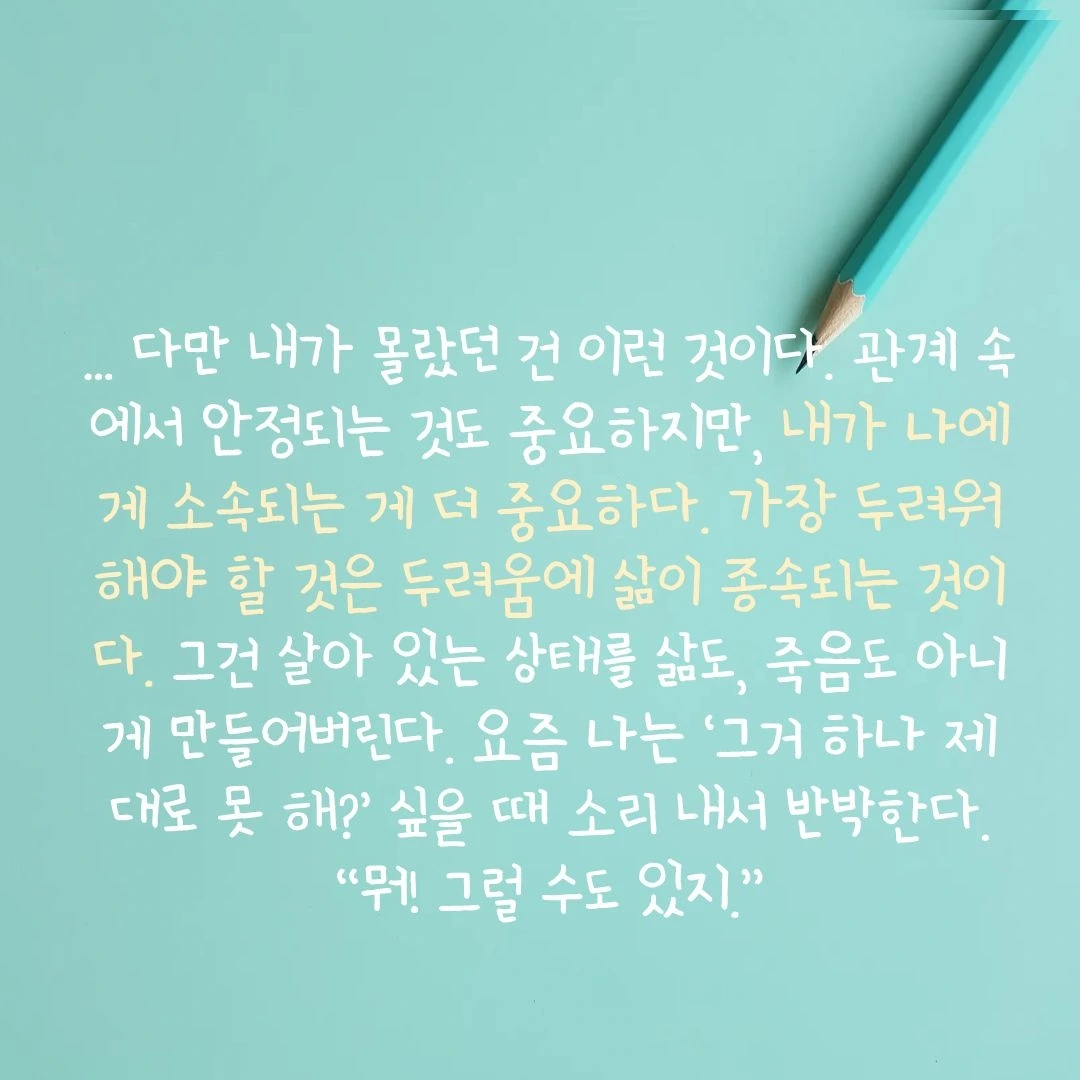 ... 다만 내가 몰랐던 건 이런 것이다. 관계 속
에서 안정되는 것도 중요하지만, 내가 나에
게 소속되는 게 더 중요하다. 가장 두려워
해야 할 것은 두려움에 삶이 종속되는 것이
다. 그건 살아 있는 상태를 삶도, 죽음도 아니
게 만들어버린다. 요즘 나는 ‘그거 하나 제
대로 못 해?’ 싶을 때 소리 내서 반박한다.
“뭐! 그럴 수도 있지.”